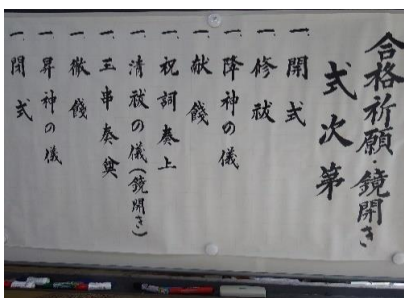 合格祈願・鏡開き
式次第
一、開式
一、修祓
一、降神の儀
一、献饌
一、祝詞奏上
一、清祓の儀（鏡開き）
一、玉串奏奠
一、撤饌
一、昇神の儀
一、閉式